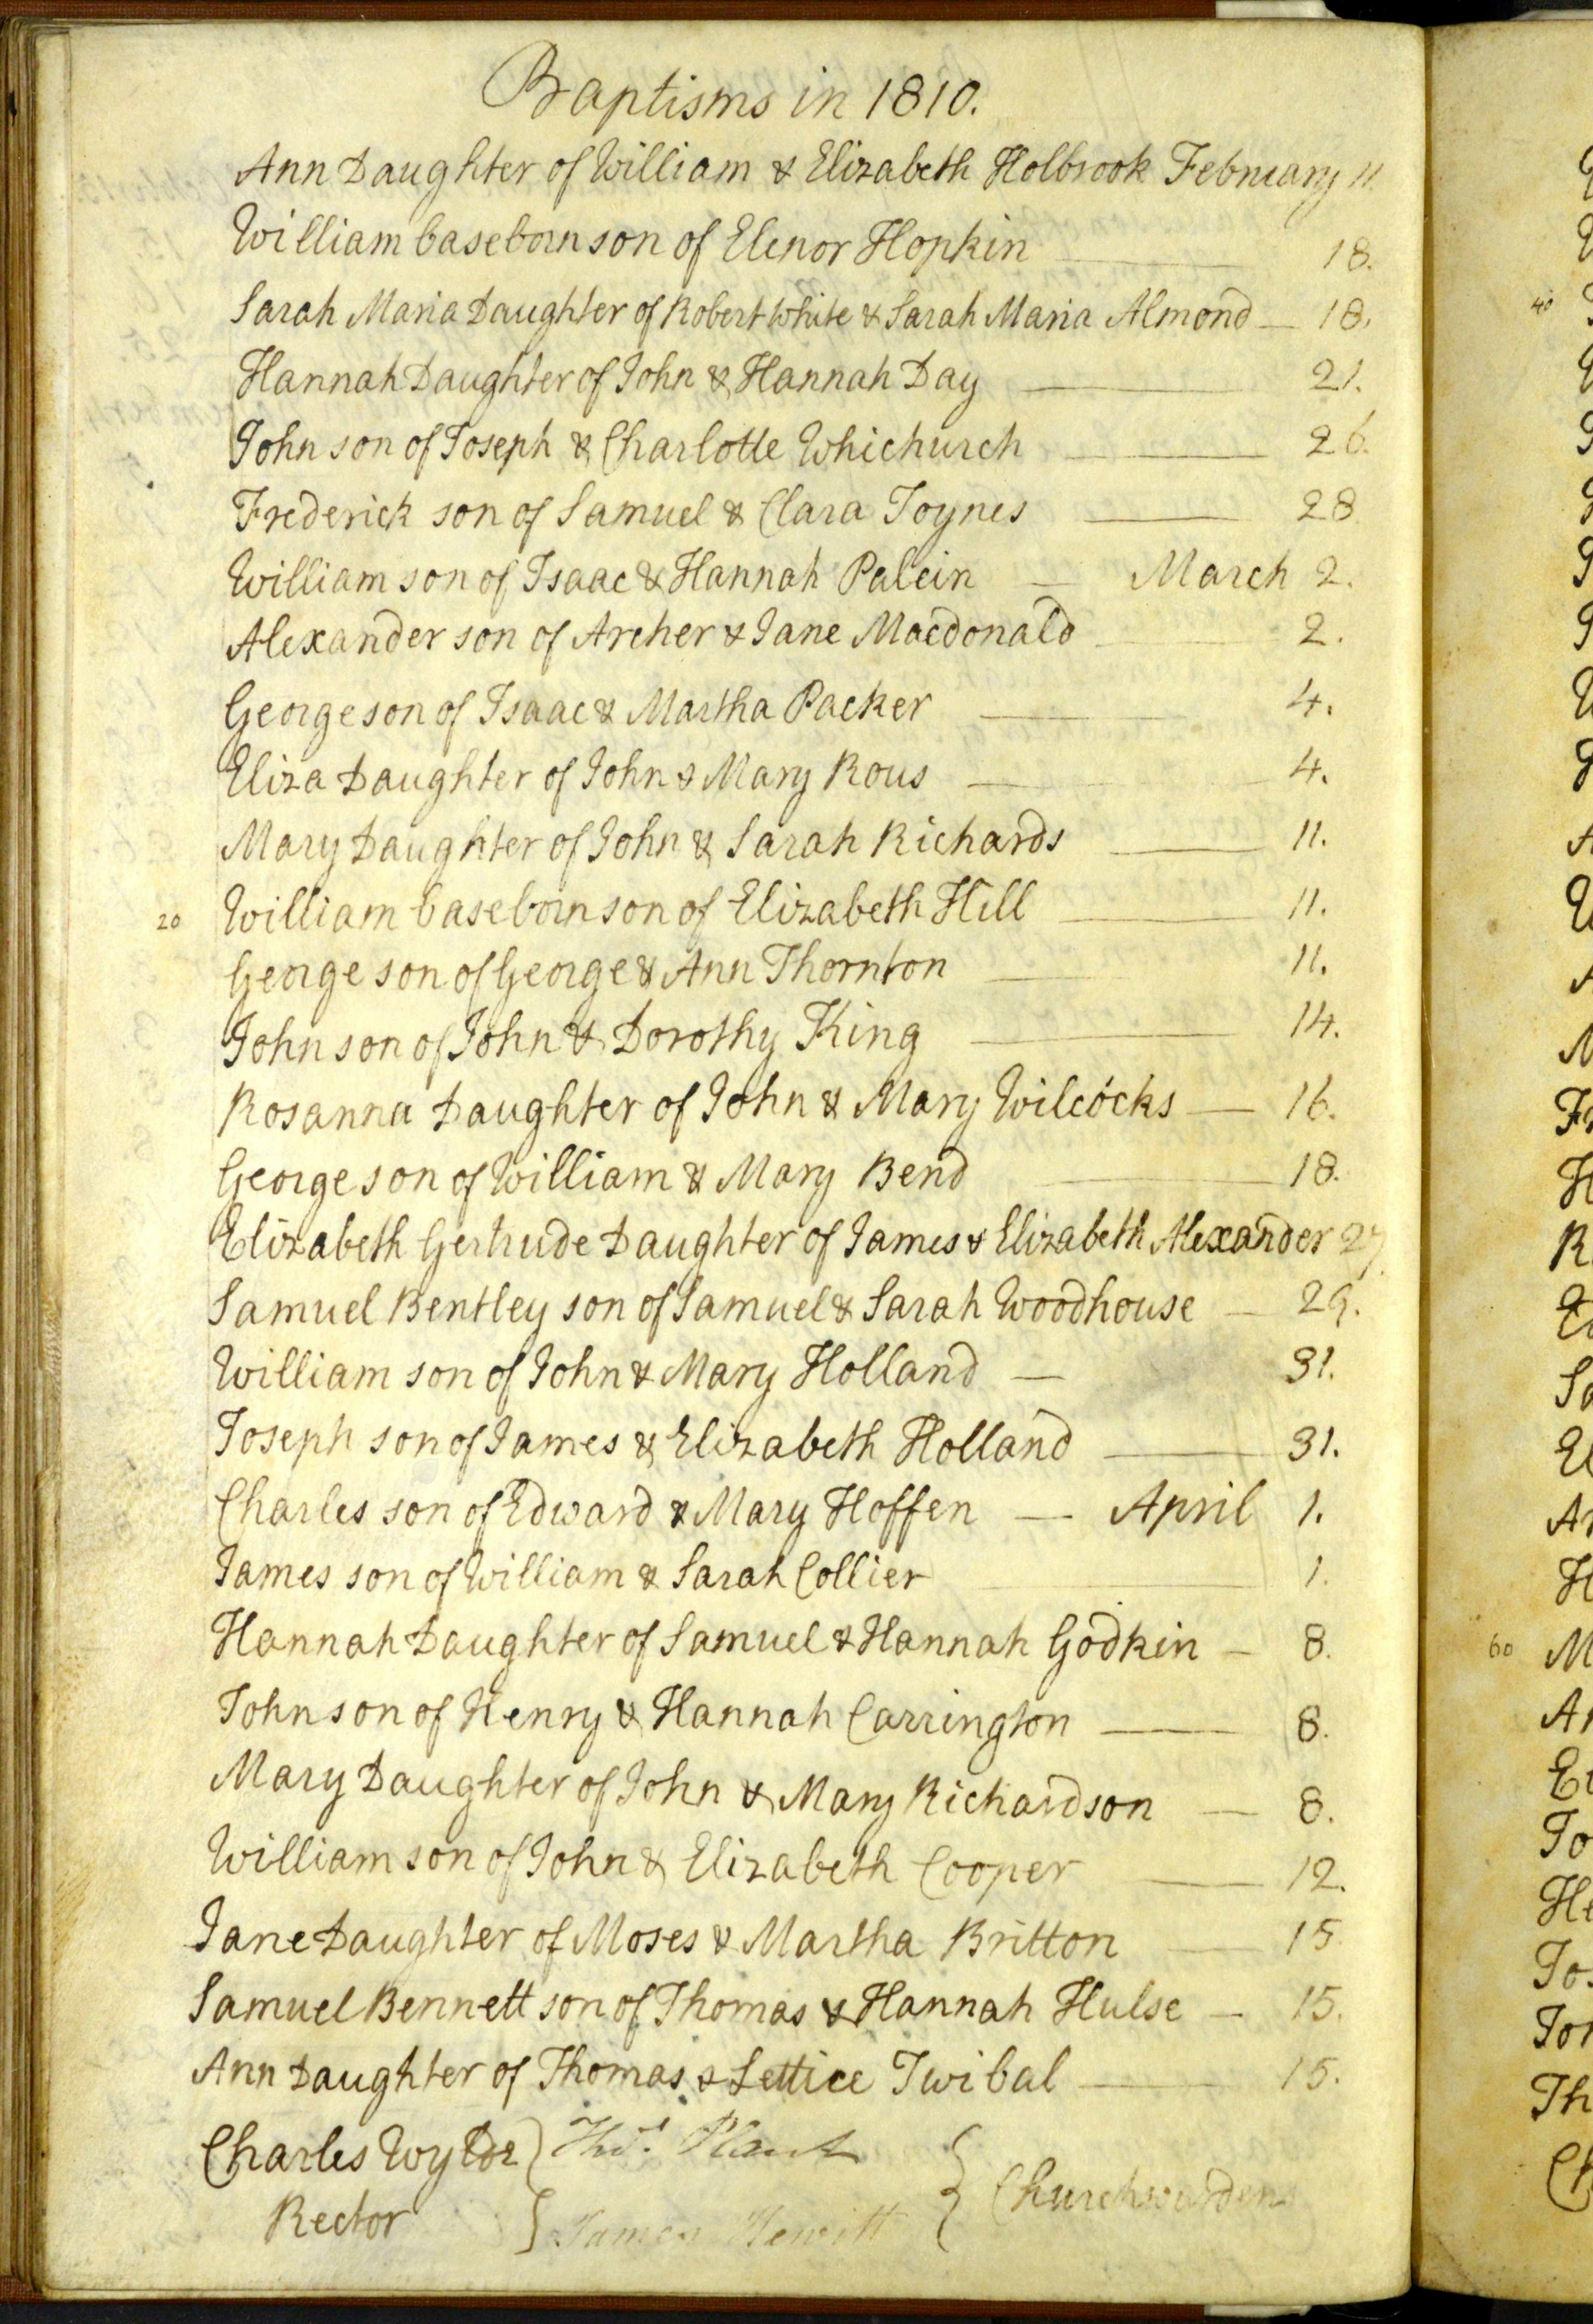 Baptisms in 1810.
Ann Daughter of William & Elizabeth Holbrook February 11.
William baseborn son of Elenor Hopkin 18.
Sarah Maria Daughter of Robert White & Sarah Maria Almond 18.
40
Hannah Daughter of John & Hannah Day 21.
John son of Joseph & Charlotte Whichurch 26.
Frederick son of Samuel & Clara Joynes 28
William son of Isaac & Hannah Palein March 2.
Alexander son of Archer & Jane Macdonald 2.
George son of Isaac & Martha Packer 4.
Eliza Daughter of John & Mary Rous 4.
Mary Daughter of John & Sarah Richards 11.
20 William baseborn son of Elizabeth Hill 11.
George son of George & Ann Thornton 11.
John son of John & Dorothy King 14.
Rosanna Daughter of John & Mary Wilcocks 16.
George son of William & Mary Bend 18.
Elizabeth Gertrude Daughter of James & Elizabeth Alexander 27
Samuel Bentley son of Samuel & Sarah Woodhouse 29.
William son of John & Mary Holland 31.
Joseph son of James & Elizabeth Holland 31.
Charles son of Edward & Mary Hoffen April 1.
James son of William & Sarah Collier 1.
Hannah Daughter of Samuel & Hannah Godkin 8.
60
John son of Henry & Hannah Carrington 8.
Mary Daughter of John & Mary Richardson 8.
William son of John & Elizabeth Cooper 12.
Jane Daughter of Moses & Martha Britton 15
Samuel Bennett son of Thomas & Hannah Hulse 15.
Ann Daughter of Thomas & Lettice Twibal 15.
Charles Wylde Thos. Plant
Rector James Hewitt Churchwardens